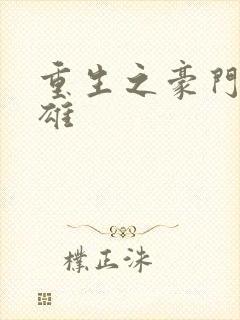 重生之豪門
雄
樸正洙